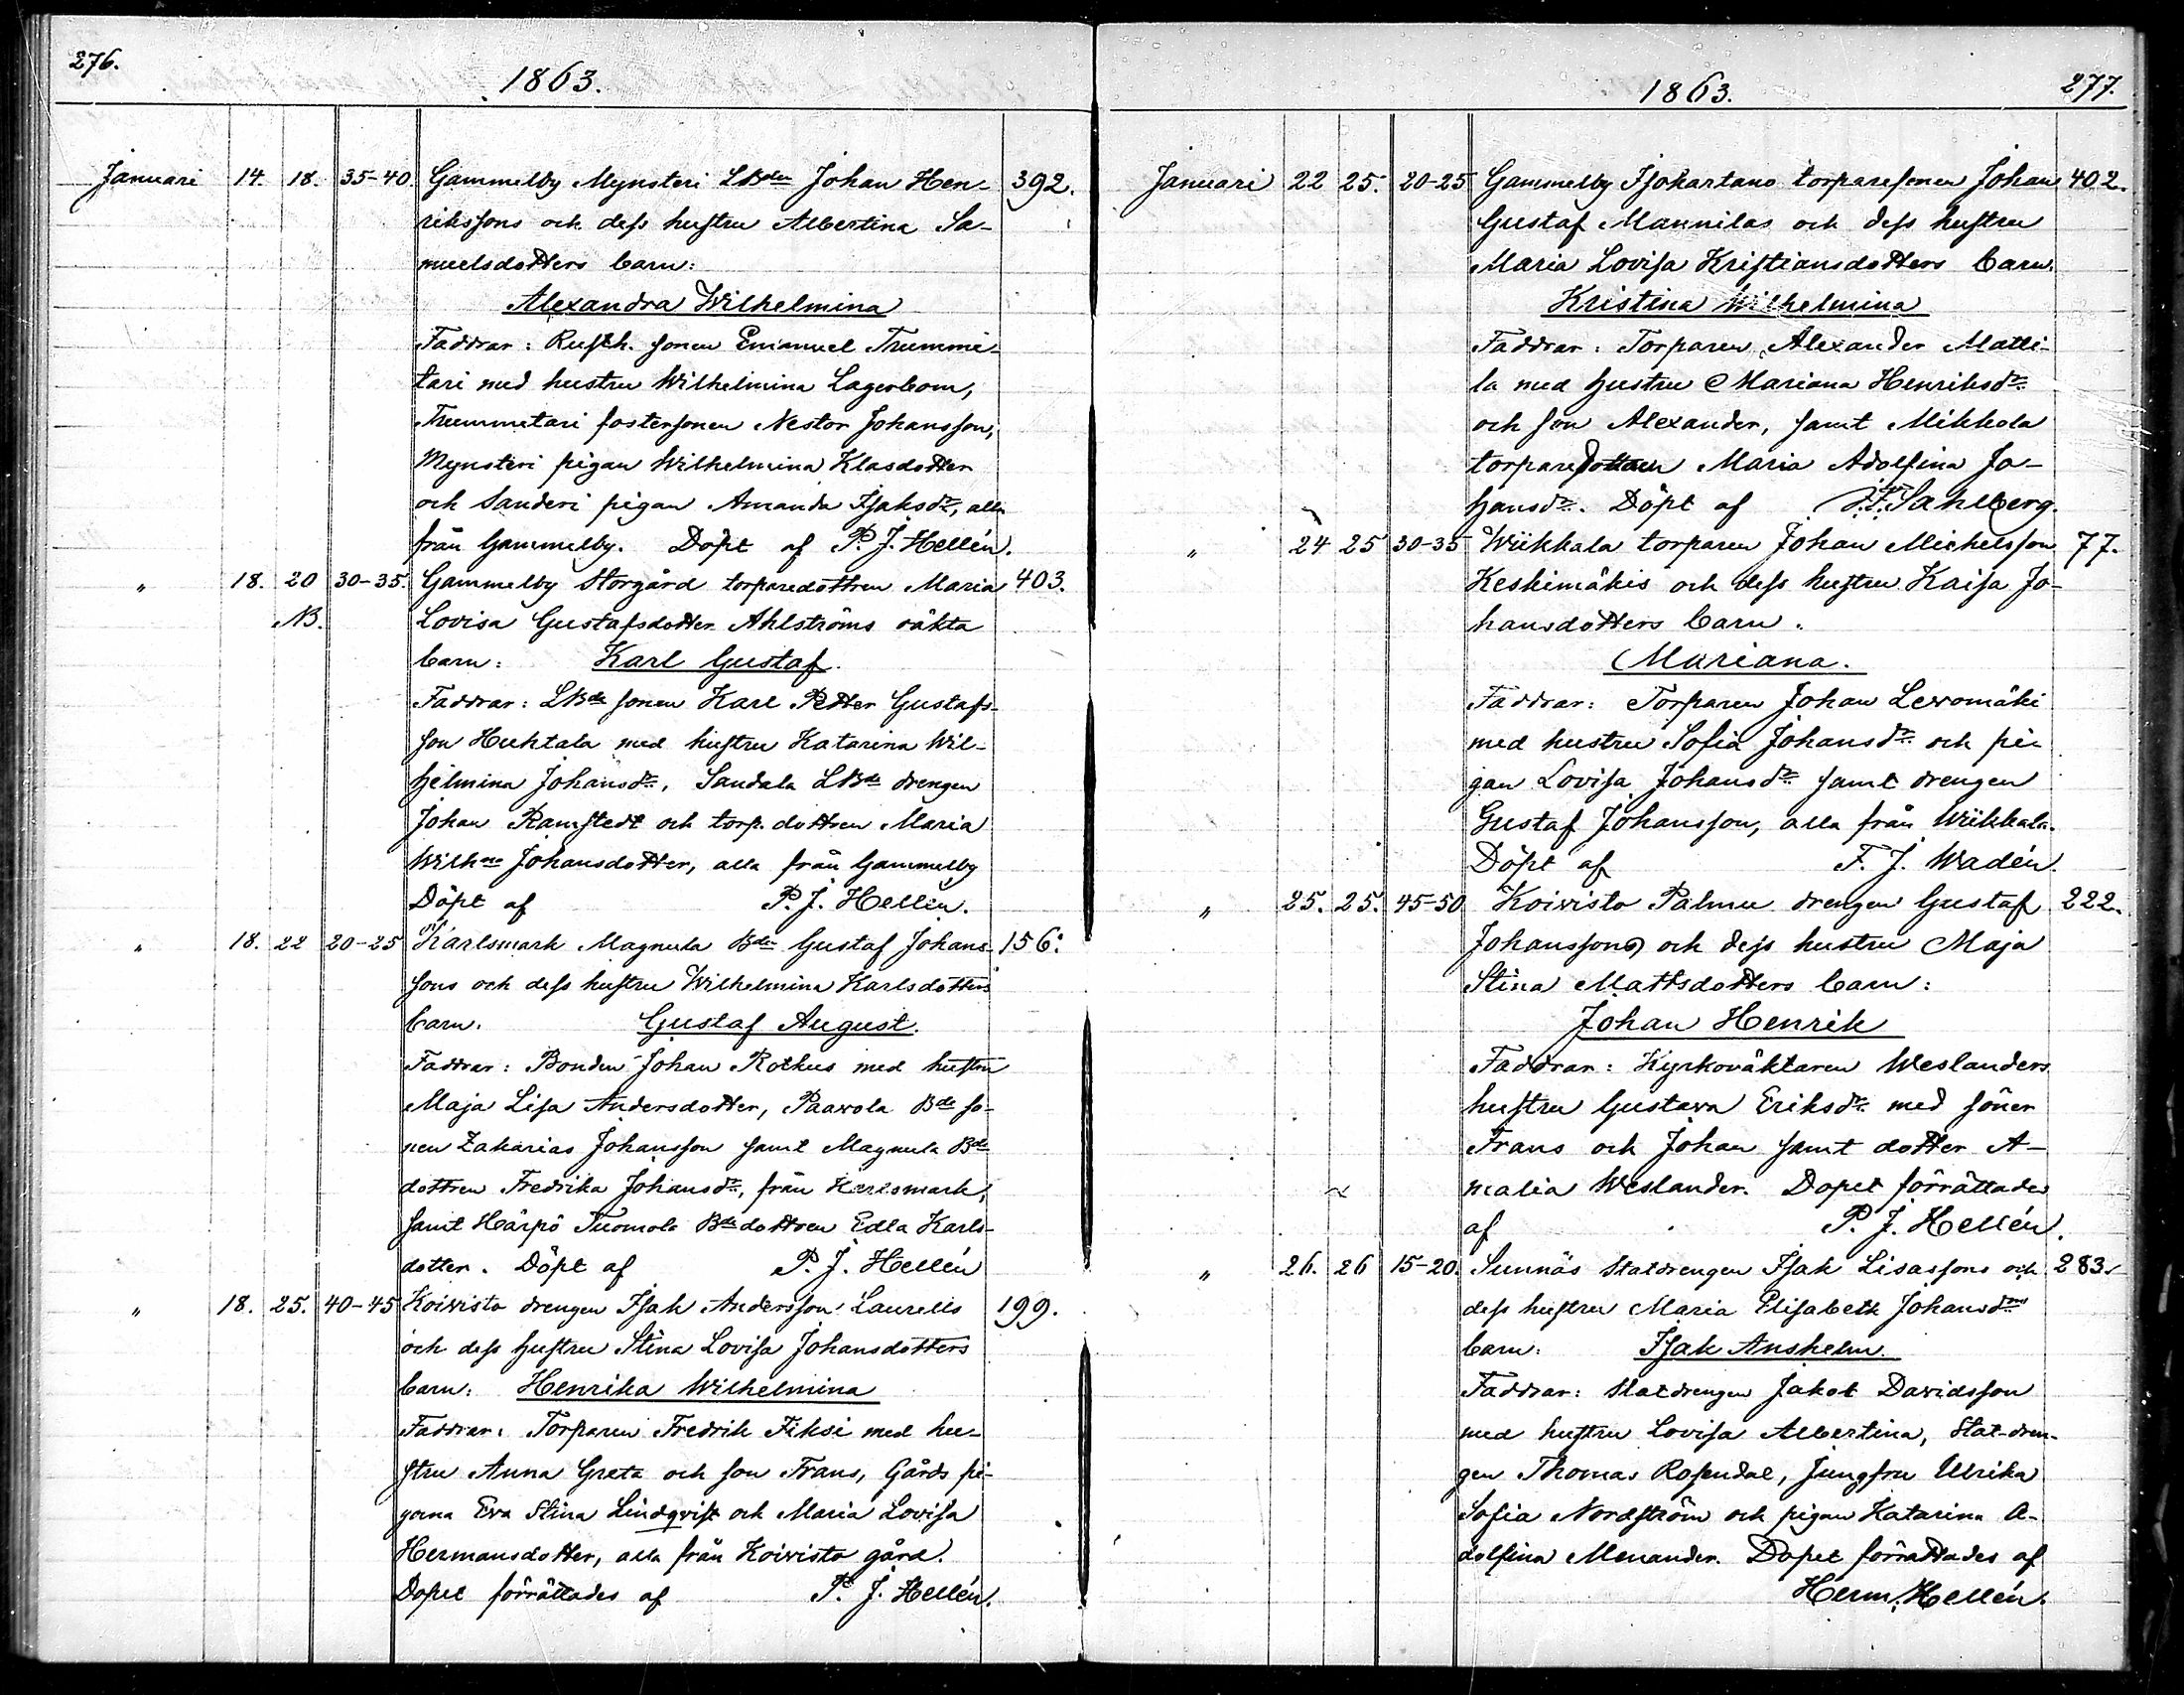 276.
1863.
Januari 14. 18. 35-40. Gammelby Mynsteri LBdn Johan Hen- 392.
rikssons och dess hustru Albertina Sa-
muelsdotters barn:
Alexandra Wilhelmina
Faddrar: Rusth. sonen Emanuel Trummi-
tari med hustru Wilhelmina Lagerbom,
Trummetari fostersonen Nestor Johansson,
Mynsteri pigan Wilhelmina Klasdotter
och Sanderi pigan Amanda Isaksdr, alla
från Gammelby. Döpt af P. J. Hellén.
" 18. 20 30-35. Gammelby Storgård torparedottren Maria 403.
NB. Lovisa Gustafsdotter Ahlströms oäkta
barn: Karl Gustaf.
Faddrar: LBde sonen Karl Petter Gustafs-
son Huhtala med hustru Katarina Wil-
hjelmina Johansdr, Sandala LBde drengen
Johan Ramstedt och torp. dottren Maria
Wilhna Johansdotter, alla från Gammelby
Döpt af P. J. Hellén.
" 18. 22 20-25 Karlsmark Magnula Bdn Gustaf Johans- 156.
sons och dess hustru Wilhelmina Karlsdotters
barn. Gustaf August.
Faddrar: Bonden Johan Rotkus med hustru
Maja Lisa Andersdotter, Paavola Bde so-
nen Zakarias Johansson samt Magnula Bde
dottren Fredrika Johansdr, från Karlsmark,
samt Härpö Tuomola Bde dottren Edla Karls-
dotter. Döpt af P. J. Hellén
" 18. 25. 40-45 Koivisto drengen Isak Andersson Laurells 199.
och dess hustru Stina Lovisa Johansdotters
barn: Henrika Wilhelmina
Faddrar: Torparen Fredrik Fiksi med hu-
stru Anna Greta och son Frans, Gårds pi-
gorna Eva Stina Lindqvist och Maria Lovisa
Hermansdotter, alla från Koivisto gård.
Dopet förrättades af P. J. Hellén.
1863.
277.
Januari 22 25. 20-25 Gammelby Isokartano torparesonen Johan 402.
Gustaf Mannilas och dess hustru
Maria Lovisa Kristiansdotters barn.
Kristina Wilhelmina
Faddrar: Torparen Alexander Matti-
la med hustru Mariana Henriksdr
och son Alexander, samt Mikkola
torparedottren Maria Adolfina Jo-
hansdr. Döpt af Sahlberg.
" 24 25 30-35 Wiikkala torparen Johan Michelsson 77.
Keskimäkis och dess hustru Kaisa Jo-
hansdotters barn.
Mariana.
Faddrar: Torparen Johan Levomäki
med hustru Sofia Johansdr och pi-
gan Lovisa Johansdr samt drengen
Gustaf Johansson, alla från Wiikkala.
Döpt af F. J. Wadén.
" 25. 25. 45-50 Koivisto Palmu drengen Gustaf 222.
Johanssons och dess hustru Maja
Stina Mattsdotters barn:
Johan Henrik
Faddrar: Kyrkoväktaren Weslanders
hustru Gustava Eriksdr med söner
Frans och Johan samt dotter A-
malia Weslander. Dopet förrättades
af P. J. Hellén.
" 26. 26 15-20. Sunnäs statdrengen Isak Lisassons och 283.
dess hustru Maria Elisabeth Johansdrs
barn: Isak Anshelm.
Faddrar: Statdrengen Jakob Davidsson
med hustru Lovisa Albertina, Stat-dren-
gen Thomas Rosendal, Jungfru Ulrika
Sofia Nordström och pigan Katarina A-
dolfina Menander. Dopet förrättades af
Herm. Hellén.